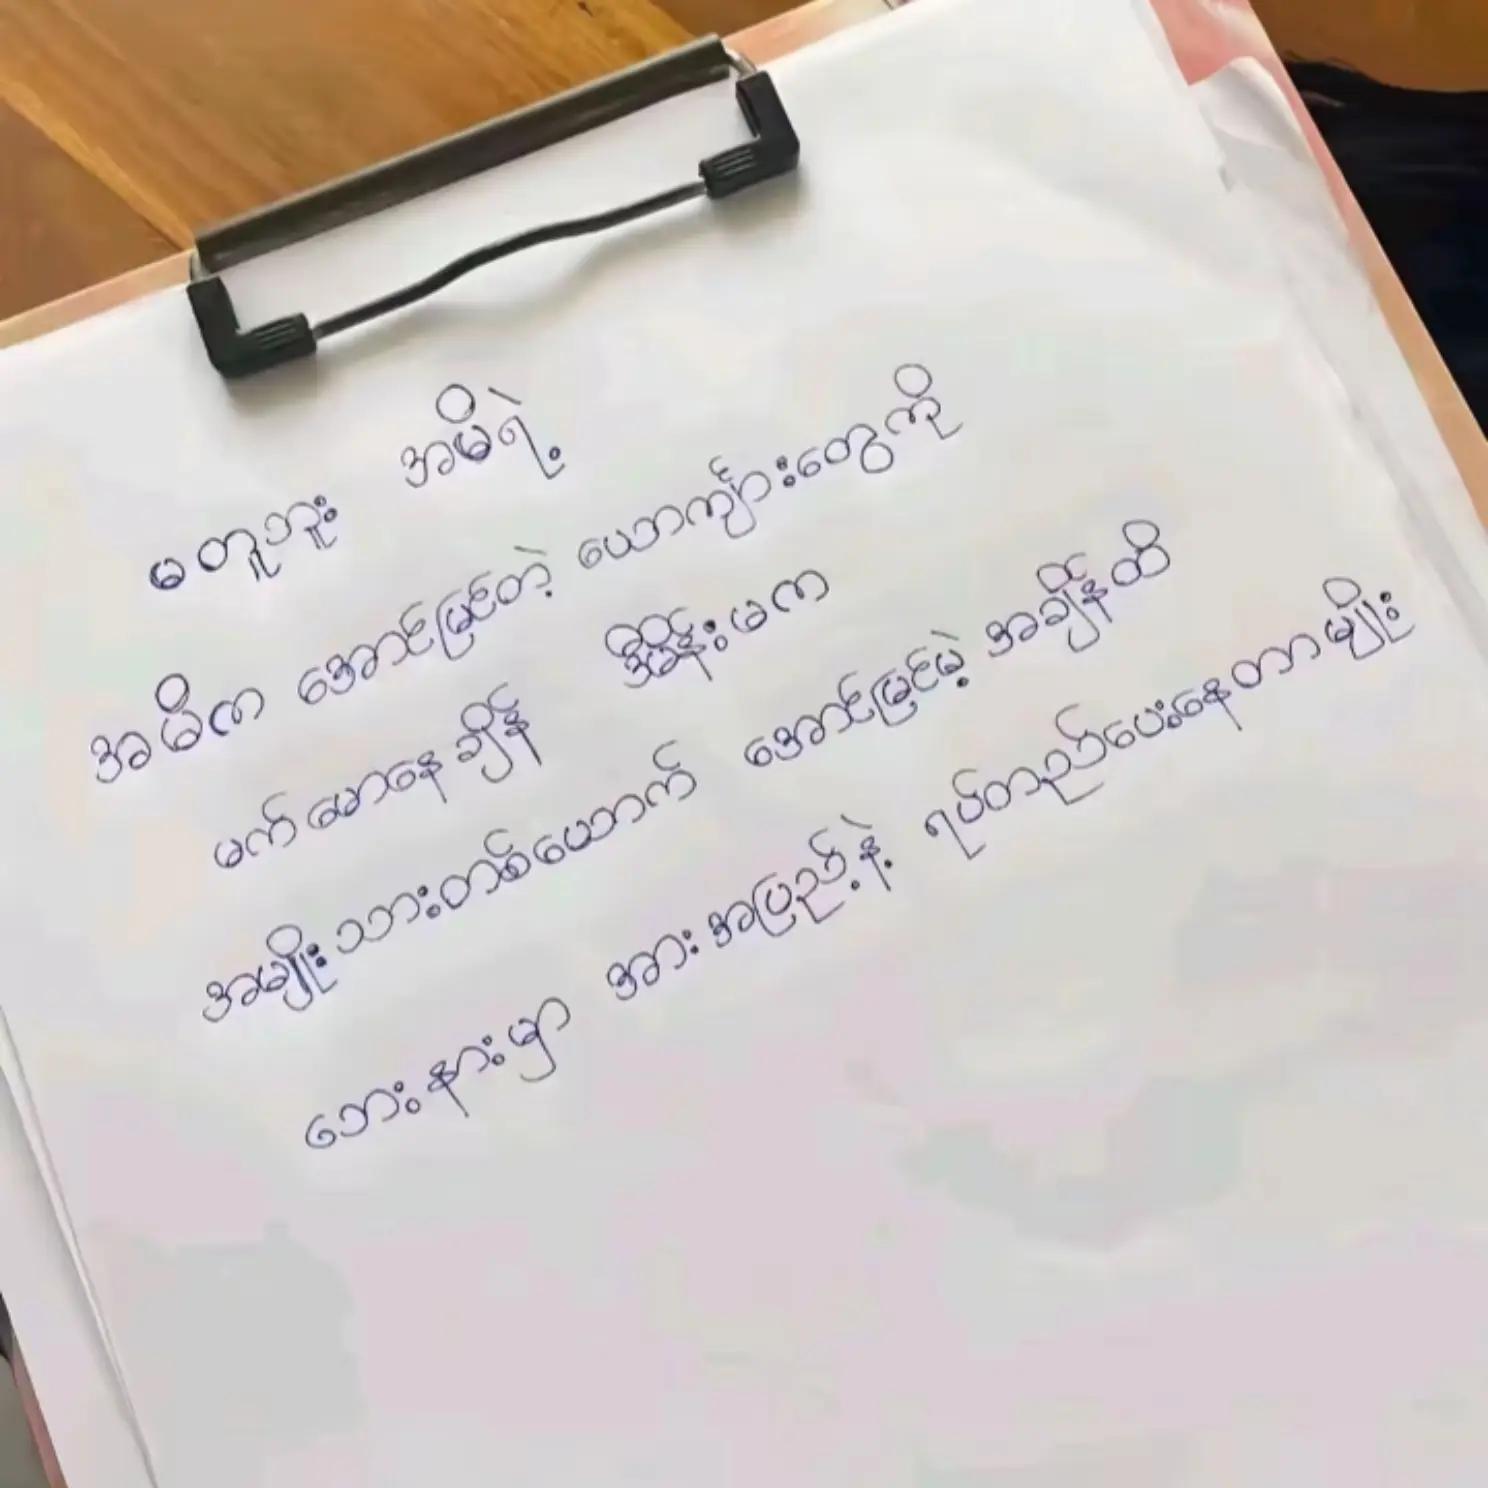 မတူဘူး အမိရဲ့
အမိက အောင်မြင်တဲ့ ယောကျာ်းတွေကို
မက်မောနေချိန် အိမ်နိုးမက
အမျိုးသားတစ်ယောက် အောင်မြင်မဲ့ အချိန်ထိ
ဘေးနားမှာ အားအပြည့်နဲ့ ရပ်တည်ပေးနေတာမျိုး